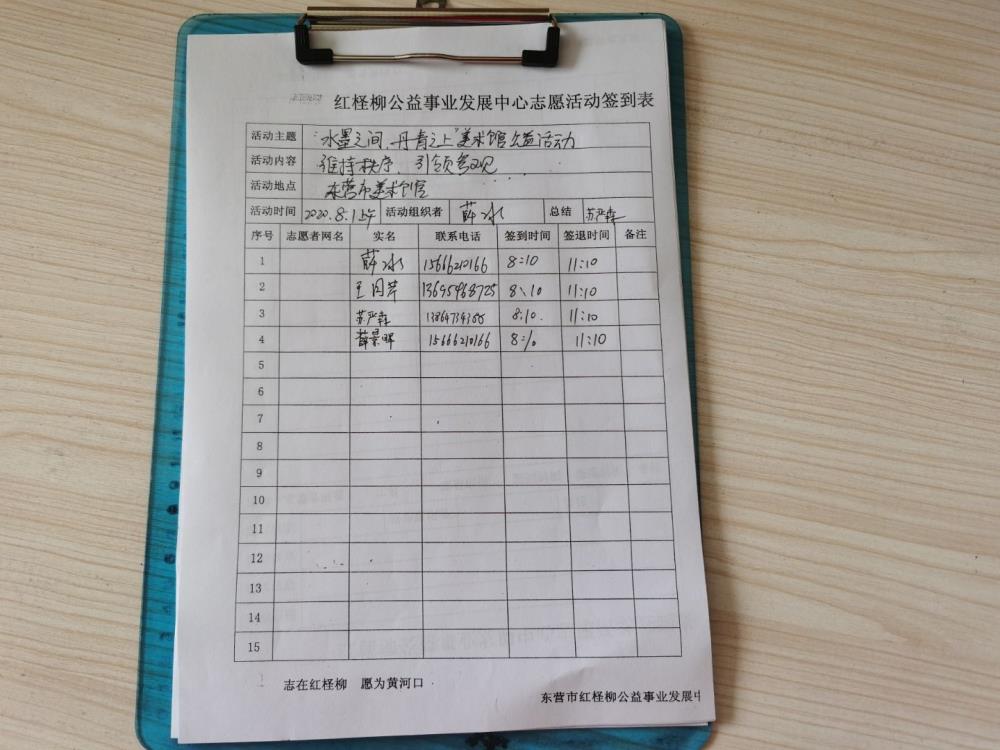 红柽柳公益事业发展中心志愿活动签到表
活动主题 "水墨之间,丹青之上"美术馆公益活动
活动内容 维持秩序、引领参观
活动地点 东营市美术馆
活动时间 2020.8.1上午 活动组织者 薛冰 总结 苏严森
序号 志愿者网名 实名 联系电话 签到时间 签退时间 备注
1 薛冰 15666210166 8:10 11:10
2 13695468725 8:10 11:10
3 苏严森 8:10. 11:10
4 薛景晖 15666210166 8:10 11:10
5
6
7
8
9
10
11
12
13
14
15
志在红柽柳 愿为黄河口
东营市红柽柳公益事业发展中